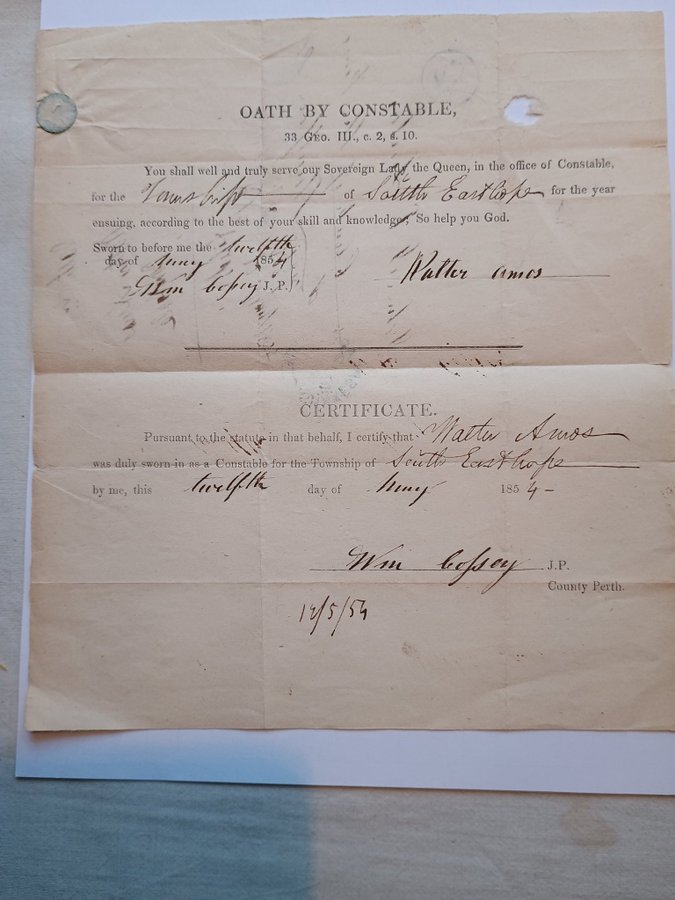 OATH BY CONSTABLE,
33 GEO. III., c. 2, s. 10.
You shall well and truly serve our Sovereign Lady the Queen, in the office of Constable,
for the Township of South Easthope for the year
ensuing, according to the best of your skill and knowledge; So help you God.
Sworn to before me the twelfth
day of May 1854
Wm Cossey J. P. Walter Amos
CERTIFICATE.
Pursuant to the statute in that behalf, I certify that Walter Amos
was duly sworn in as a Constable for the Township of South Easthope
by me, this twelfth day of May 1854-
Wm Cossey J.P.
County Perth.
12/5/54